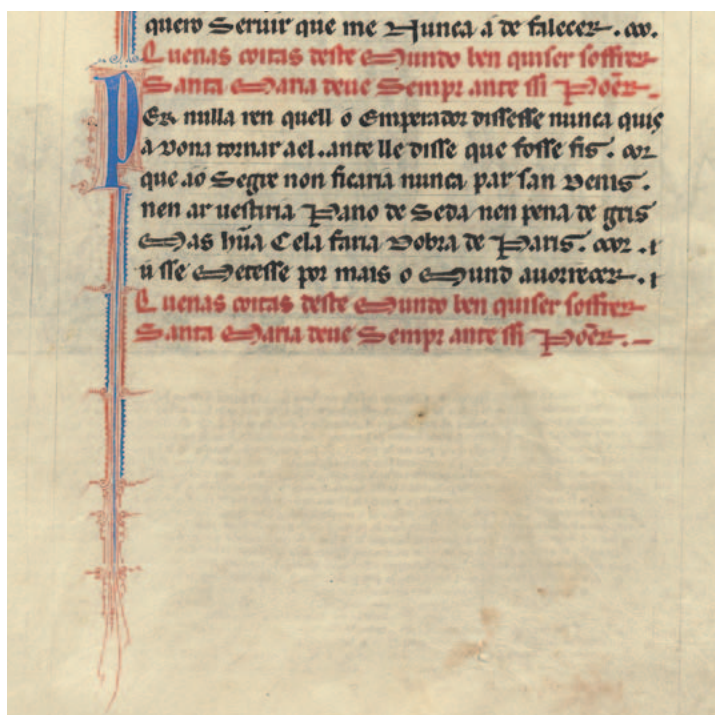 quero Seruir que me Nunca á de falecer.
Quenas coitas deste Mundo ben quiser soffrer
Santa Maria deue Sempr ante ssi Põer.
PEr nulla ren quell o Emperador dissesse nunca quis
a Dona tornar ael . ante lle disse que fosse fis.
que aó Segre non ficaria nunca par san Denis.
nen ar uestiria Pano de Seda nen pena de gris
Mas hũa Cela faria Dobra de Paris.
ú sse Metesse por mais o Mund auorrecer.
Quenas coitas deste Mundo ben quiser soffrer
Santa Maria deue Sempr ante ssi Põer.